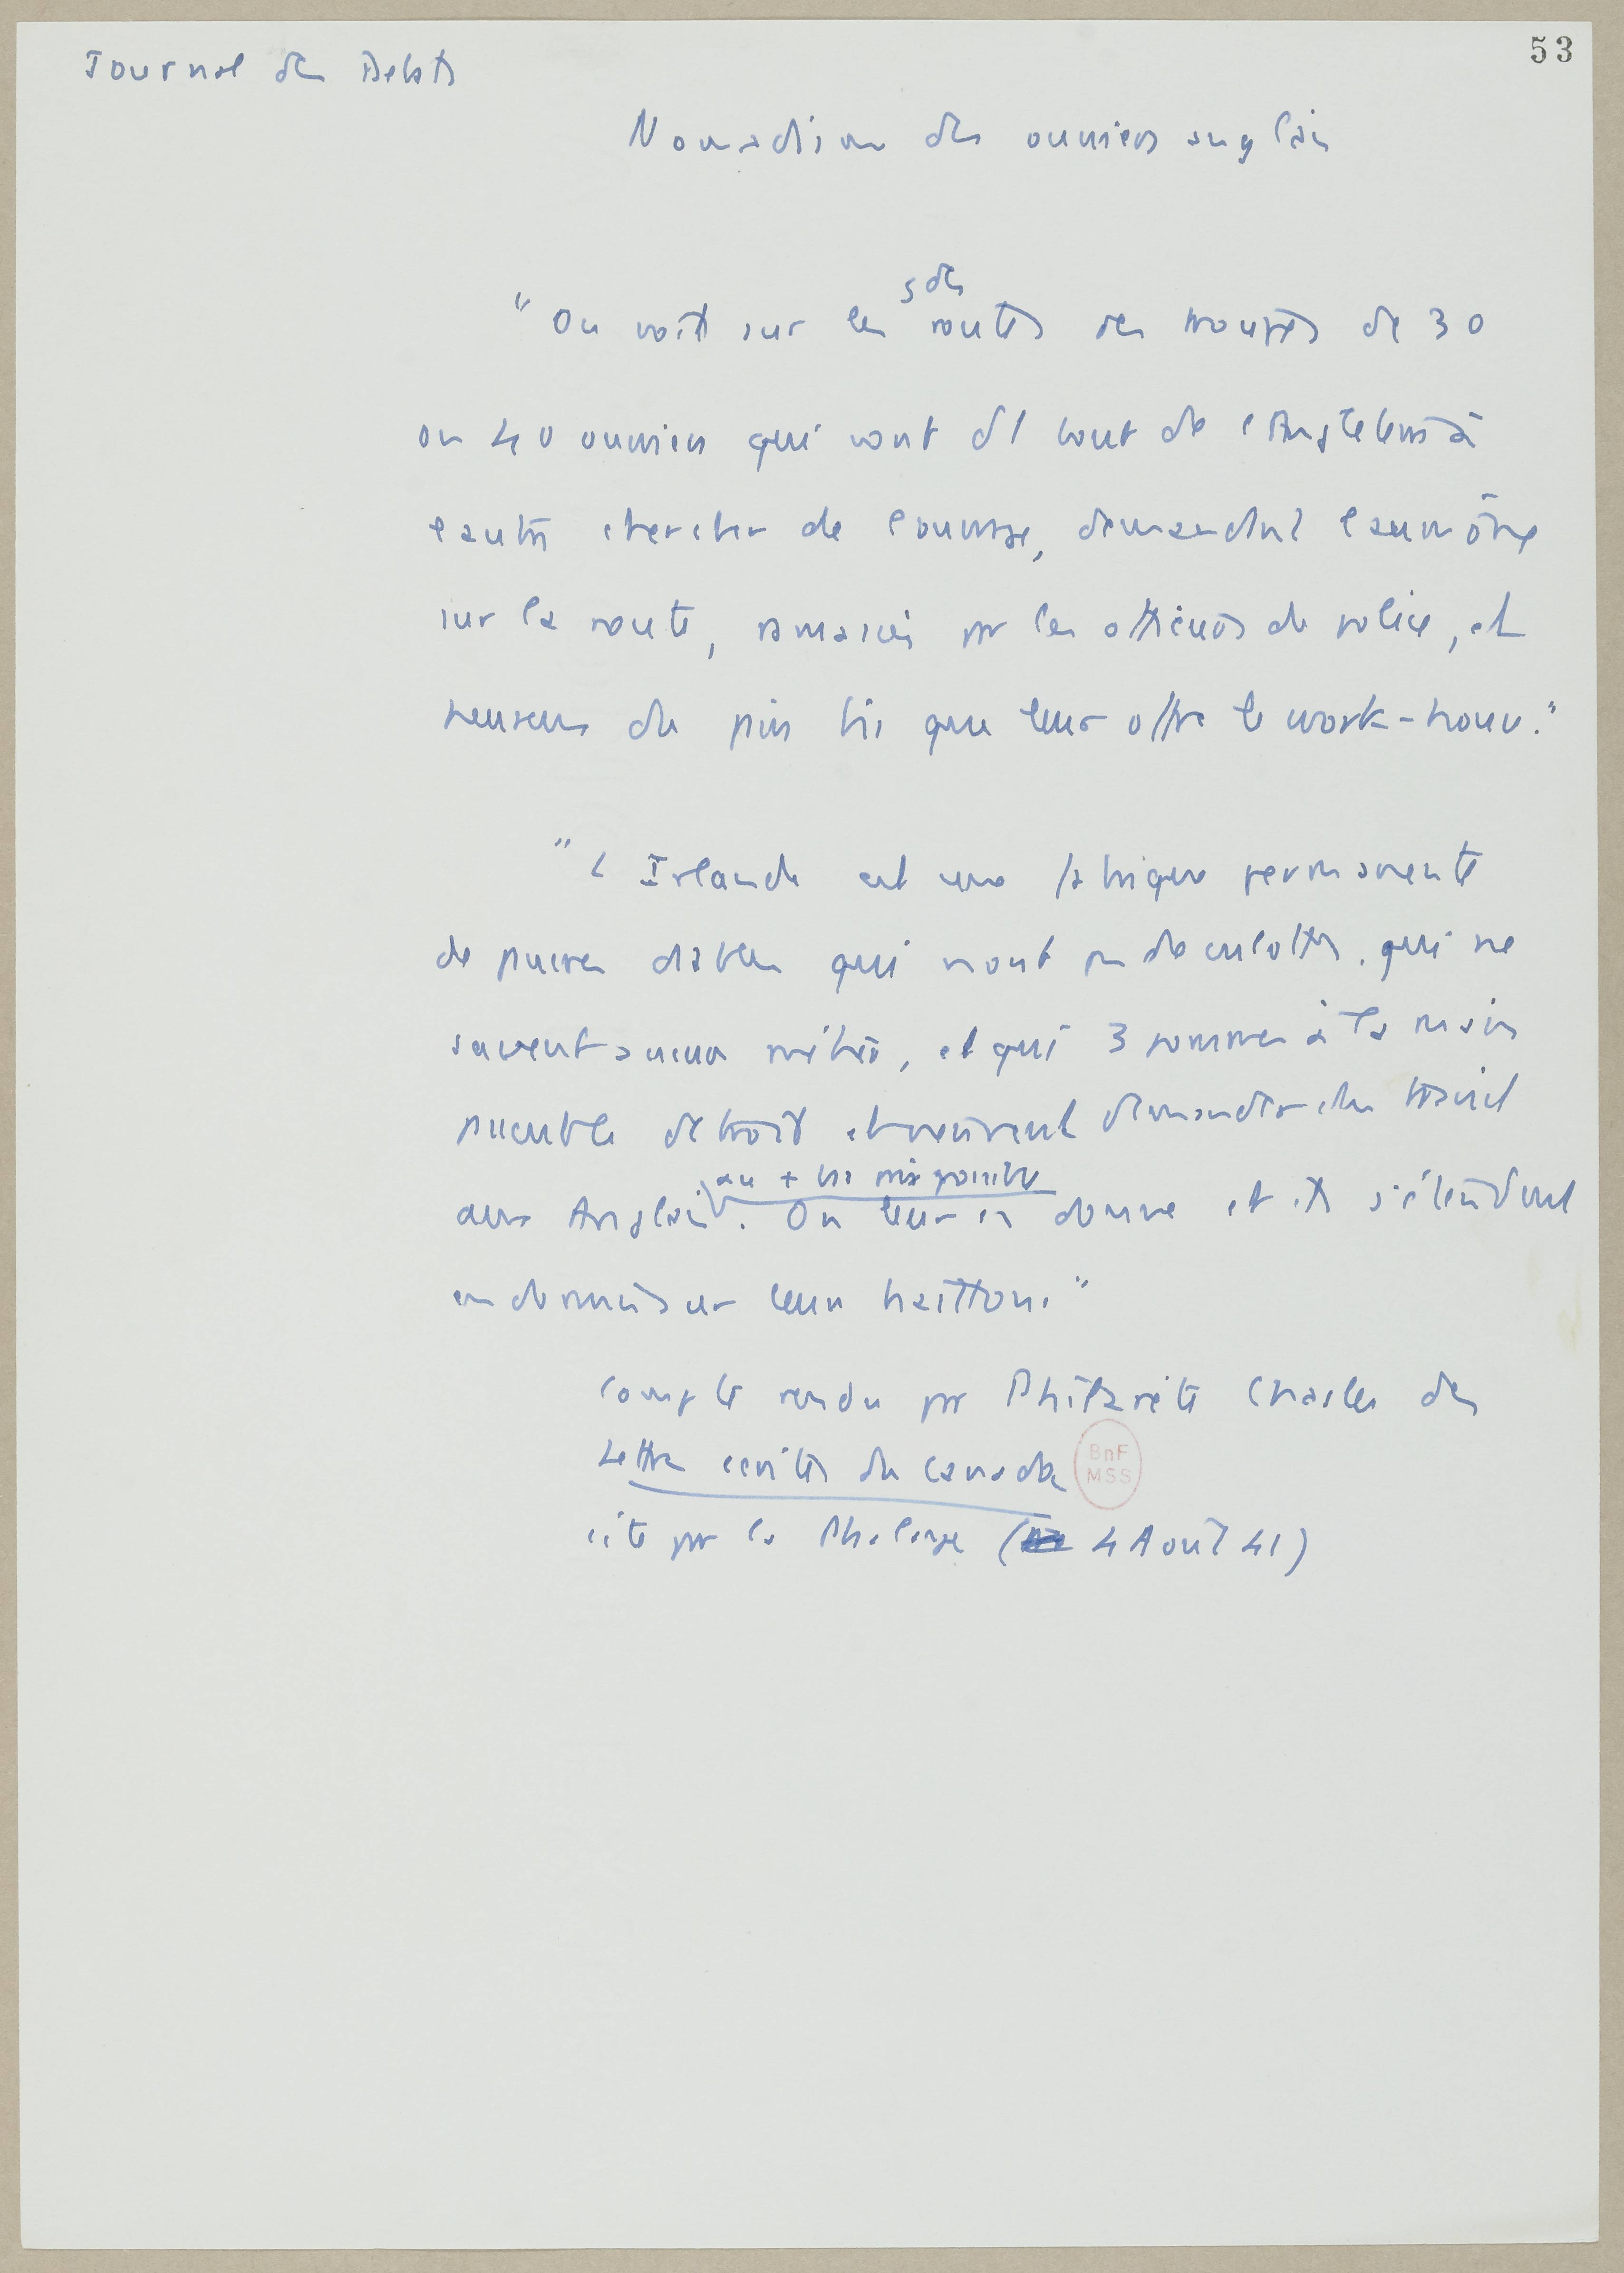 53
Journal des Debats
Nomadisme des ouvriers anglais
"On voit sur les gdes routes des troupes de 30
ou 40 ouvriers qui vont d1 bout de l'Angleterre à
l'autre chercher de l'ouvrage, demandant l'aumône
sur la route, ramassés par les officiers de police, et
heureux du pain bis que leur offre le work-house."
"L'Irlande est une fabrique permanente
de pauvres diables qui n'ont pas de culottes, qui ne
savent aucun métier, et qui 3 pommes à la main
passent le detroit et viennent demander du travail
aux Anglais au + bas prix possible. On leur en donne et ils s'étendent
en dormir sur leurs haillons."
Compte rendu par Philarète Chasles des
Lettres ecrites du Canada
BnF
MSS
cité par la Phalange (4 Août 41)